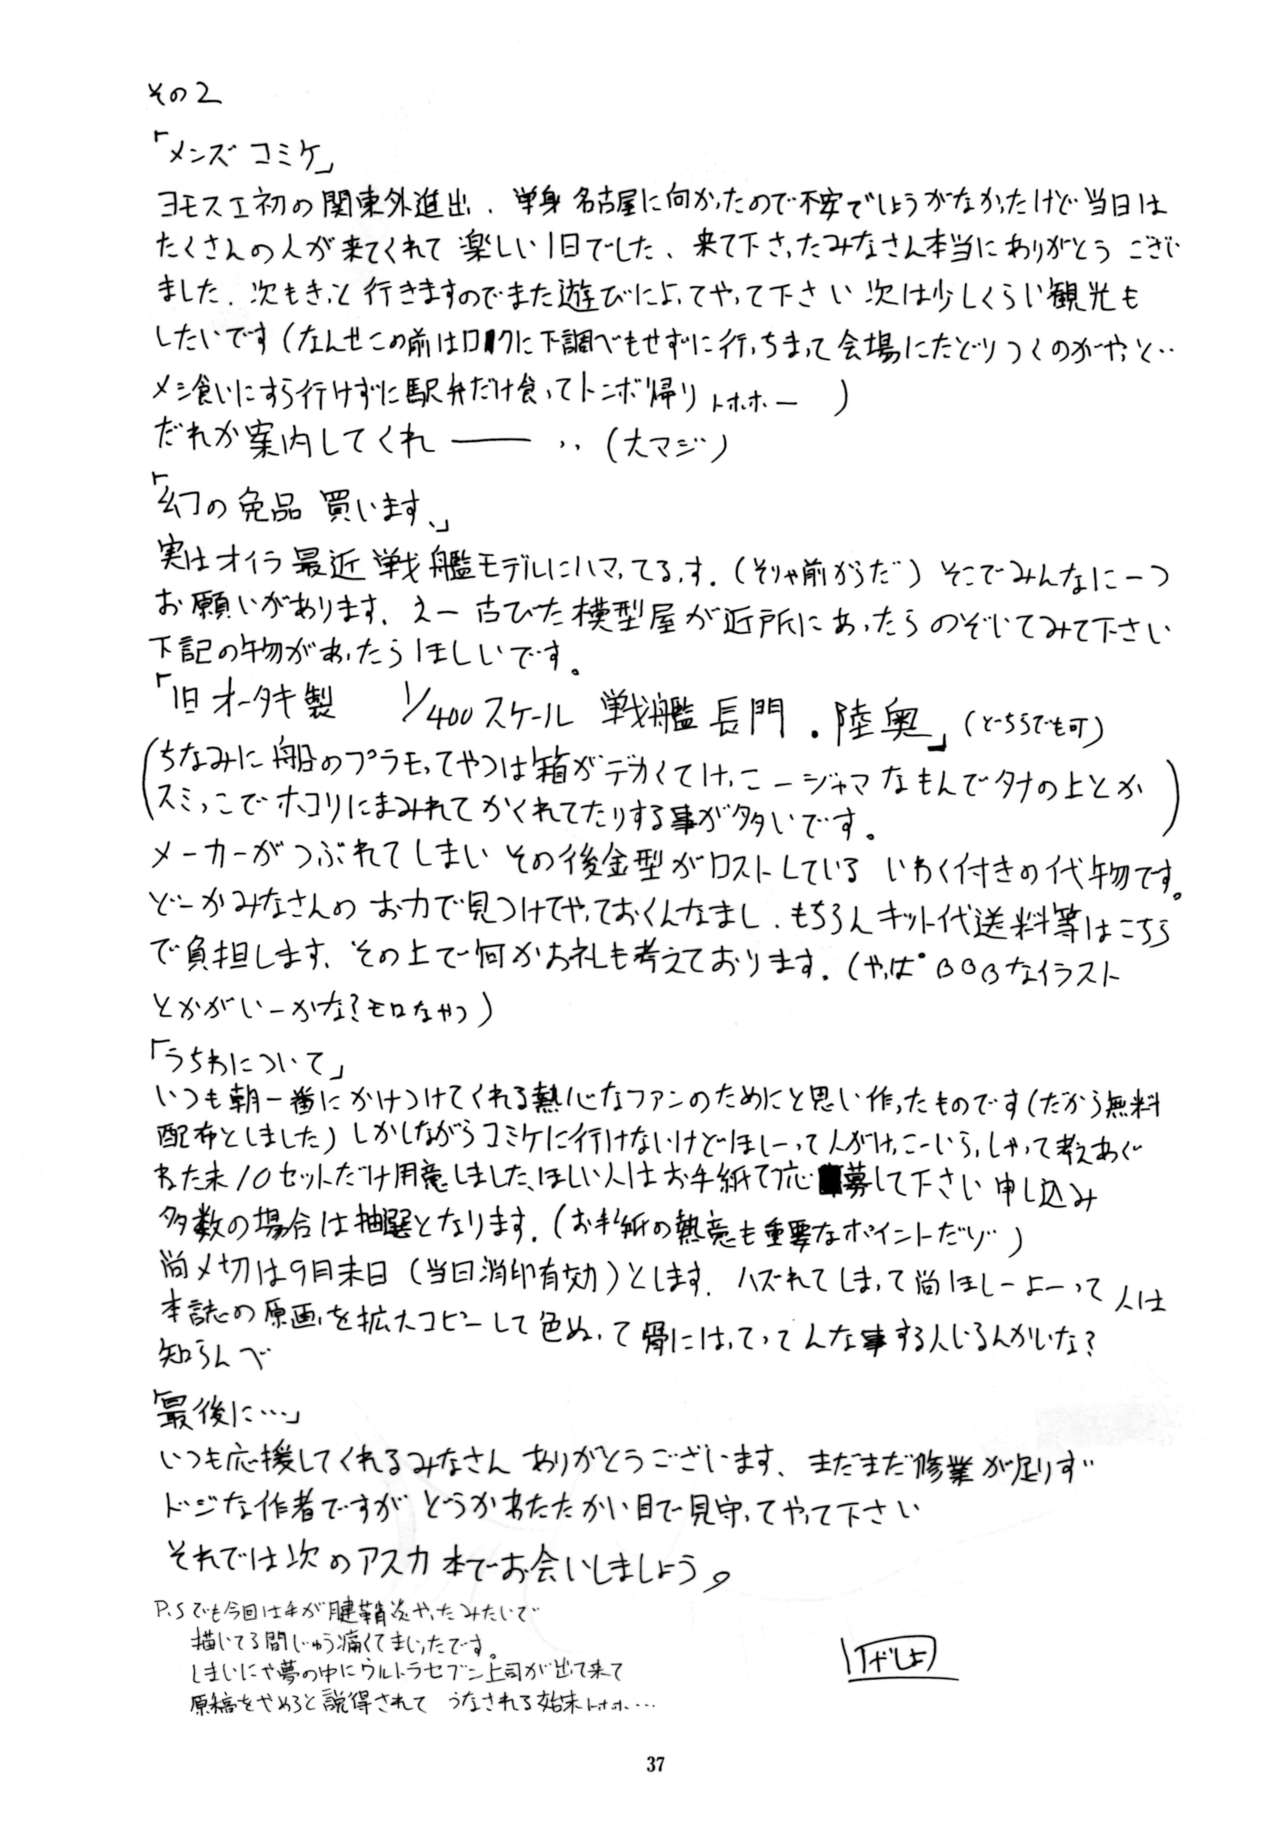 その2
「メンズコミケ」
ヨモスエ初の関東外進出、単身名古屋に向かったので不安でしょうがなかったけど当日は
たくさんの人が来てくれて楽しい1日でした、来て下さったみなさん本当にありがとうござい
ました、次もきっと行きますのでまた遊びによってやって下さい次は少しくらい観光も
したいです(なんせこの前はロクに下調べもせずに行っちまって会場にたどりつくのがやっと‥
メシ食いにすら行けずに駅弁だけ食ってトンボ帰りトホホー)
だれか案内してくれ――‥(大マジ)
「幻の免品買います、」
実はオイラ最近戦艦モデルにハマってるっす。(そりゃ前からだ)そこでみんなに一つ
お願いがあります、えー古びた模型屋が近所にあったらのぞいてみて下さい
下記の物があったらほしいです。
「旧オータキ製 1/400スケール 戦艦長門・陸奥」(どーちらでも可)
(ちなみに船のプラモってやつは箱がデカくてけっこージャマなもんでタナの上とか
スミっこでホコリにまみれてかくれてたりする事が多いです。)
メーカーがつぶれてしまいその後金型がロストしているいわく付きの代物です。
どーかみなさんのお力で見つけてやっておくんなまし、もちろんキット代送料等はこちら
で負担します、その上で何かお礼も考えております。(やっぱBOBなイラスト
とかがいーかな?モロなやつ)
「うちわについて」
いつも朝一番にかけつけてくれる熱心なファンのためにと思い作ったものです(だから無料
配布としました)しかしながらコミケに行けないけどほしーって人がけっこーいらっしゃって考えあぐ
ねた末10セットだけ用意しました、ほしい人はお手紙で応募して下さい申し込み
多数の場合は抽選となります。(お手紙の熱意も重要なポイントだゾ)
尚〆切は9月末日(当日消印有効)とします、ハズれてしまって尚ほしーよーって人は
本誌の原画を拡大コピーして色ぬって骨にはってってんな事する人いるんかいな?
知らんべ
「最後に…」
いつも応援してくれるみなさんありがとうございます、まだまだ修業が足りず
ドジな作者ですがどうかあたたかい目で見守ってやって下さい
それでは次のアスカ本でお会いしましょう。
P.Sでも今回は手が腱鞘炎やったみたいで
描いてる間じゅう痛くてまいったです。
しまいにゃ夢の中にウルトラセブン上司が出て来て
原稿をやめろと説得されてうなされる始末トホホ…
37